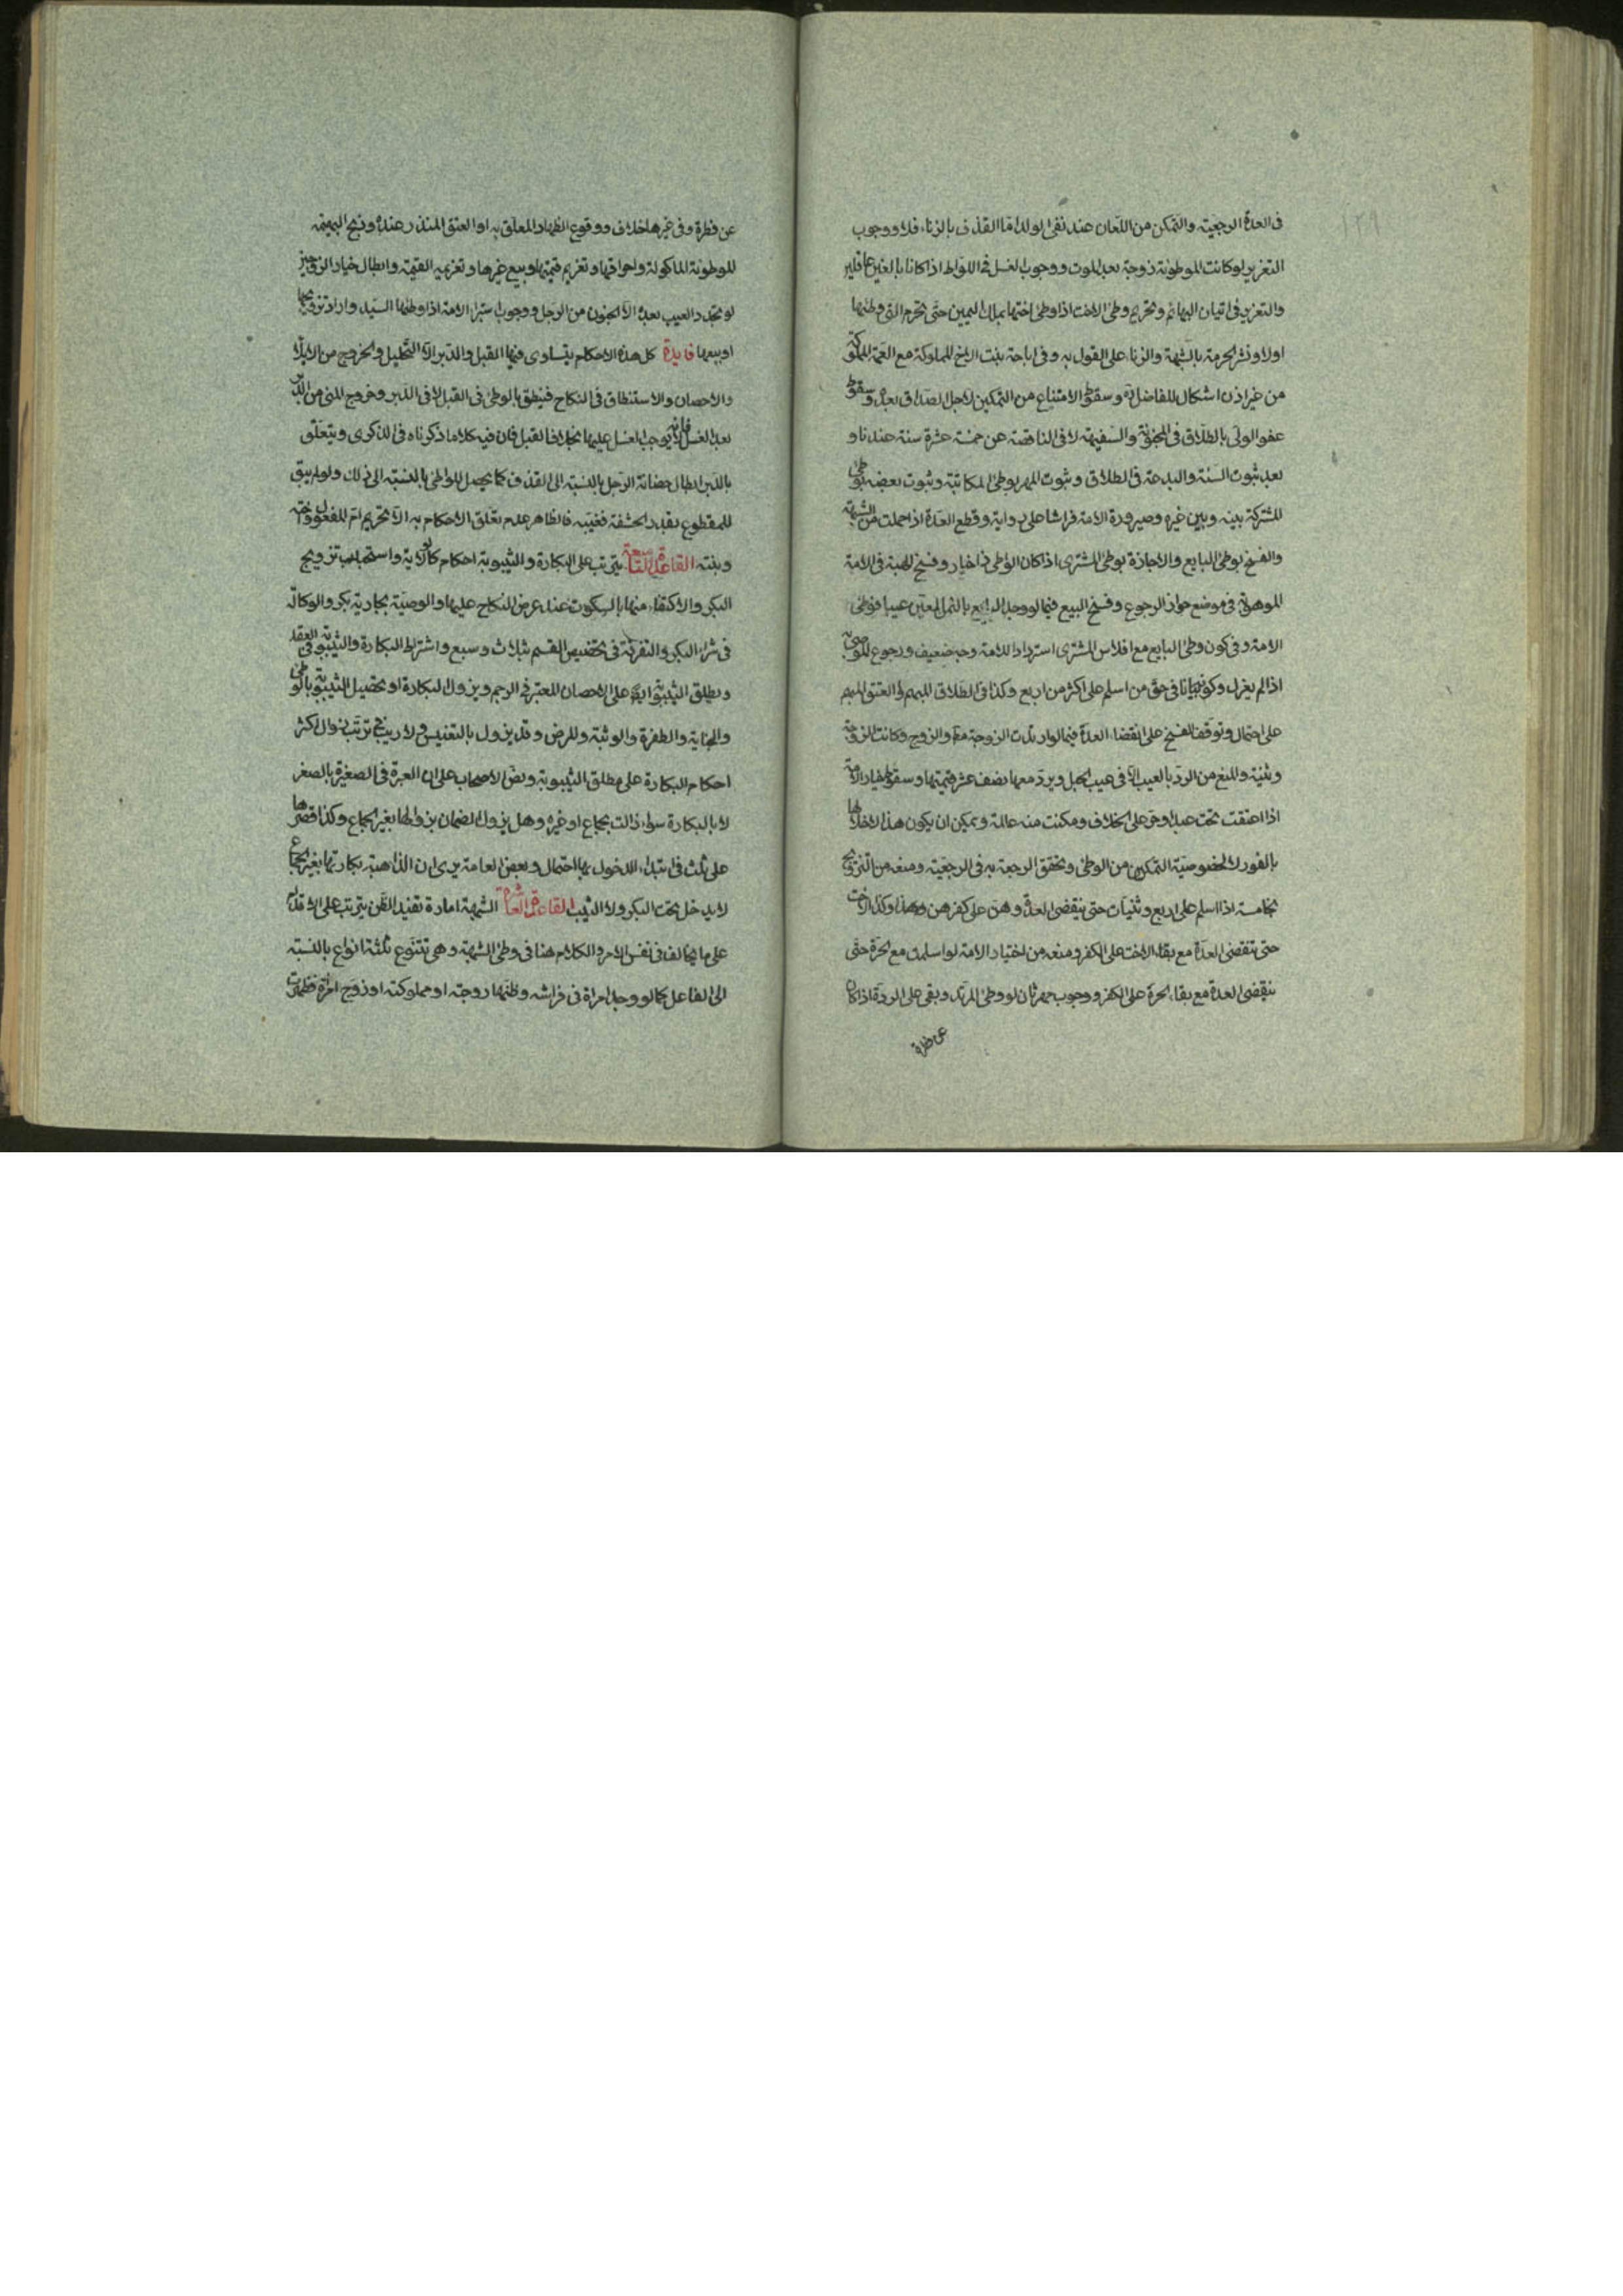 ١٢٩
فى العدة الرجعية والتمكن من اللعان عند نفى الولد اما القذف بالزناء فلا ووجوب
التعزير لوكانت الموطوئة زوجة بعد الموت ووجوب الغسل فى اللواط اذا كانا بالغين عاقلين
والتعزير فى اتيان البهائم وتحريم وطئ الاخت اذا وطئ اختها بملك اليمين حتى تحرم التى وطئها
اولا ونشر الحرمة بالشبهة والزناء على القول به وفى اباحة بنت الاخ المملوكة مع العمة المملوكة
من غير اذن اشكال للفاضل ره وسقوط الامتناع من التمكين لاجل الصداق بعده وسقوط
عفو الولى بالطلاق فى المجنونة والسفيهة لا فى الناقصة عن خمسة عشرة سنة عندنا و
بعد ثبوت السنة والبدعة فى الطلاق وثبوت المهر بوطئ المكاتبة وثبوت بعضه بوطئ
المشتركة بينه وبين غيره وصيرورة الامة فراشا على رواية وقطع العدة اذا حملت من الشبهة
والفسخ بوطئ البايع والاجازة بوطئ المشترى اذا كان الوطى ذا خيار وفسخ الهبة فى الامة
الموهوبة فى موضع جواز الرجوع وفسخ البيع فيما لو وجد البايع بالثمن المعين عيبا فوطئ
الامة وفى كون وطئ البايع مع افلاس المشترى استردادا للامة وجه ضعيف ورجوع للموصى به
اذا لم يعزل وكونه بيانا فى حق من اسلم على اكثر من اربع وكذا فى الطلاق المبهم او العتق المبهم
على احتمال وتوقف الفسخ على انقضاء العدة فيما لو ارتدت الزوجة معا والزوج وكانت الزوجة
وثنية والمنع من الرد بالعيب الا فى عيب الحبل ويرد معها نصف عشر قيمتها وسقوط خيار الامة
اذا اعتقت تحت عبد او حر على الخلاف ومكنت منه عالمة ويمكن ان يكون هذا لاخلالها
بالفور لا لخصوصية التمكين من الوطئ وتحقق الرجعة به فى الرجعية ومنعه من التزويج
بخامسة اذا اسلم على اربع وثنيات حتى ينقضى العدة وهن على كفرهن وهذا وكذا الاخت
حتى تنقضى العدة مع بقاء الاخت على الكفر ومنعه من اختيار الامة لو اسلمت مع الحرة حتى
ينقضى العدة مع بقاء الحرة على الكفر ووجوب مهر ثان لو وطئ المرتد وبقى على الردة اذا كان
عن فطرة
عن فطرة وفى غيرها خلاف ووقوع الظهار المعلق به او العتق المنذر عنده وذبح البهيمة
الموطوئة الماكولة واحراقها وتغريم قيمتها وبيع غيرها وتغريمه القيمة وابطال خيار الزوجين
لو تجدد العيب بعده الا الجنون من الرجل ووجوب استبراء الامة اذا وطئها السيد واراد تزويجها
او بيعها فايدة كل هذه الاحكام يتساوى فيها القبل والدبر الا التحليل والخروج من الايلاء
والاحصان والاستنطاق فى النكاح فنيطق بالوطئ فى القبل لا فى الدبر وخروج المنى من الدبر
بعد الغسل فانه لا يوجب الغسل عليها بخلاف القبل فان فيه كلاما ذكرناه فى الذكرى ويتعلق
بالدبر ابطال حضانة الرجل بالنسبة الى القذف كما يحصل للواطئ بالنسبة الى ذلك ولو لم يبق
للمقطوع بقدر الحشفة فغيبه فالظاهر عدم تعلق الاحكام به الا تحريم ام المفعول واخته
وبنته القاعدة التاسعة يترتب على البكارة والثيبوبة احكام كالولاية واستحباب تزويج
البكر والاكتفاء منها بالسكوت عند عرض النكاح عليها والوصية بجارية بكر والوكالة
فى شراء البكر والتفرقة فى تخصيص القسم بثلاث وسبع واشتراط البكارة والثيبوبة فى العقد
ويطلق الثيبوبة ايضا على الاحصان المعتبر فى الرجم ويزول البكارة او تحصيل الثيبوبة بالوطئ
والجناية والطفرة والوثبة والمرض وقد يزول بالتعنيس ولا ريب فى ترتب زوال اكثر
احكام البكارة على مطلق الثيبوبة ونص الاصحاب على ان العبرة فى الصغيرة بالصغر
لا بالبكارة سواء زالت بجماع او غيره وهل يزول الضمان بزوالها بغير الجماع وكذا قصرها
على ثلث فى ابتداء الدخول بها احتمال وبعض العامة يرى ان الذاهبة بكارتها بغير جماع
لا يدخل تحت البكر ولا الثيب القاعدة العاشرة الشبهة امارة تفيد الظن يترتب على الاقدام
على ما يخالف فى نفس الامر والكلام هنا فى وطئ الشبهة وهى تتنوع ثلثة انواع بالنسبة
الى الفاعل كما لو وجد امراة فى فراشه وظنها زوجته او مملوكته او زوج امراة فظهرت